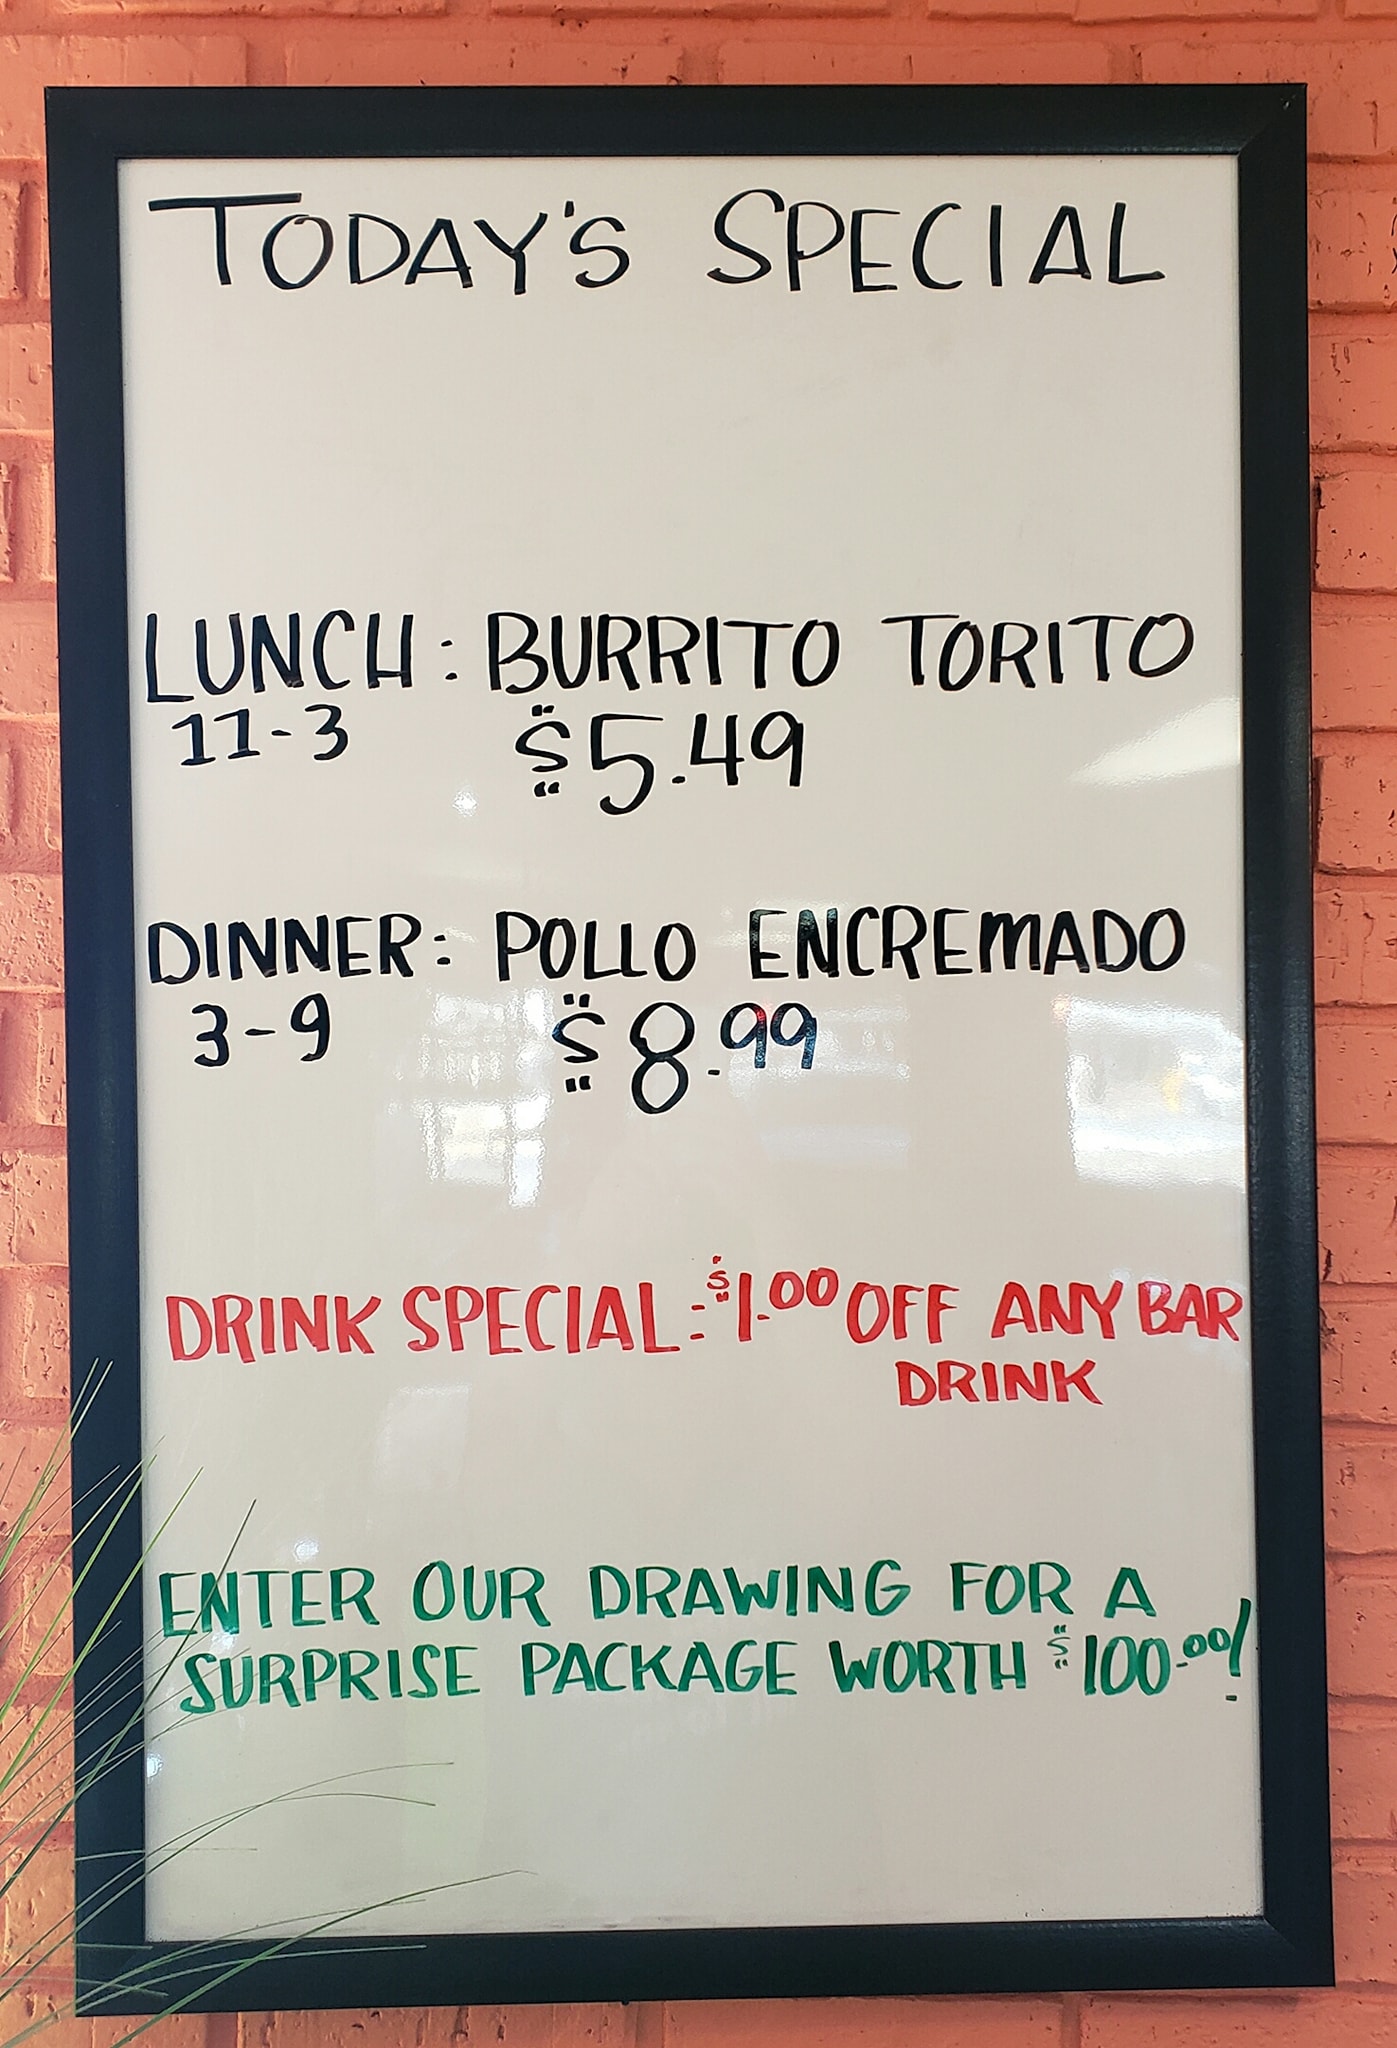 TODAY'S SPECIAL
LUNCH: BURRITO TORITO
11-3 $5.49
DINNER: POLLO ENCREMADO
3-9 $8.99
DRINK SPECIAL: $1.00 OFF ANY BAR
DRINK
ENTER OUR DRAWING FOR A
SURPRISE PACKAGE WORTH $100.00!